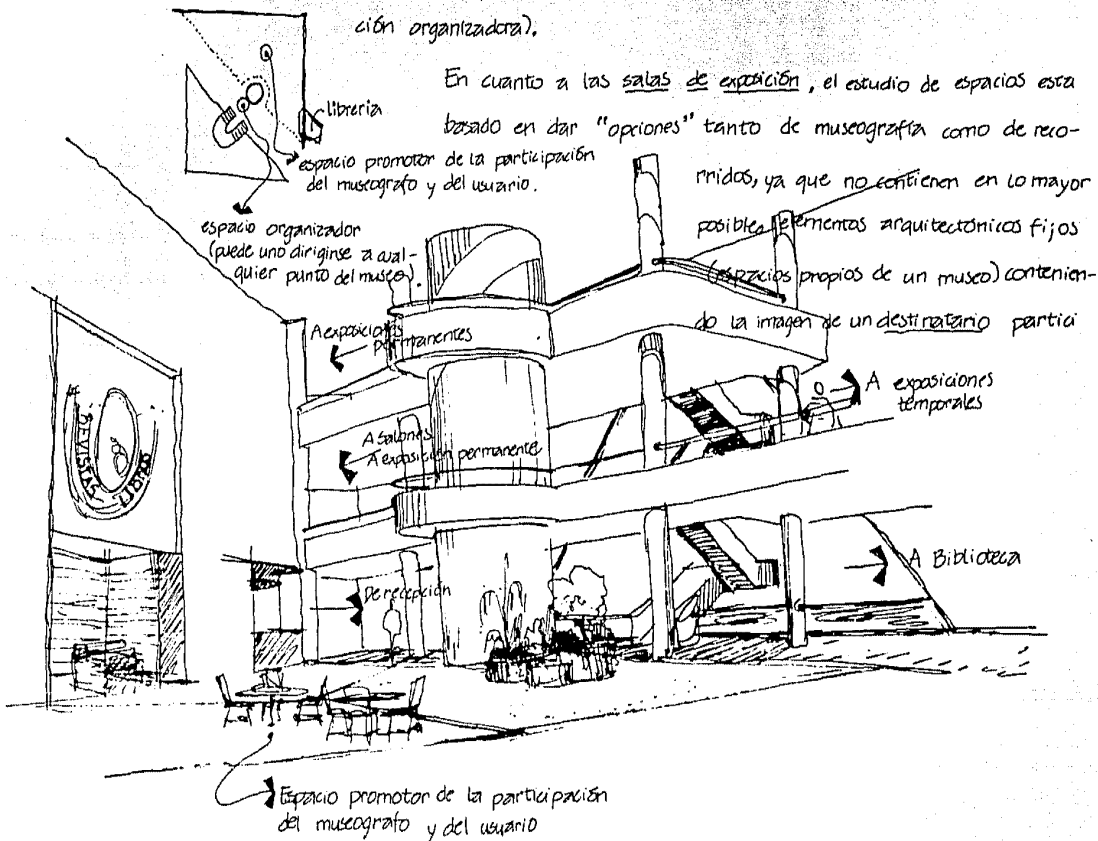 ción organizadora).
En cuanto a las salas de exposición, el estudio de espacios esta
basado en dar "opciones" tanto de museografía como de reco-
rridos, ya que no contienen en lo mayor
posible elementos arquitectónicos fijos
(espacios propios de un museo) contenien-
do la imagen de un destinatario partici
librería
espacio promotor de la participación
del museografo y del usuario.
espacio organizador
(puede uno dirigirse a cual-
quier punto del museo).
A exposiciones
permanentes
A exposiciones
temporales
A Salones
A exposición permanente
REVISTAS
LIBROS
A Biblioteca
De recepción
Espacio promotor de la participación
del museografo y del usuario